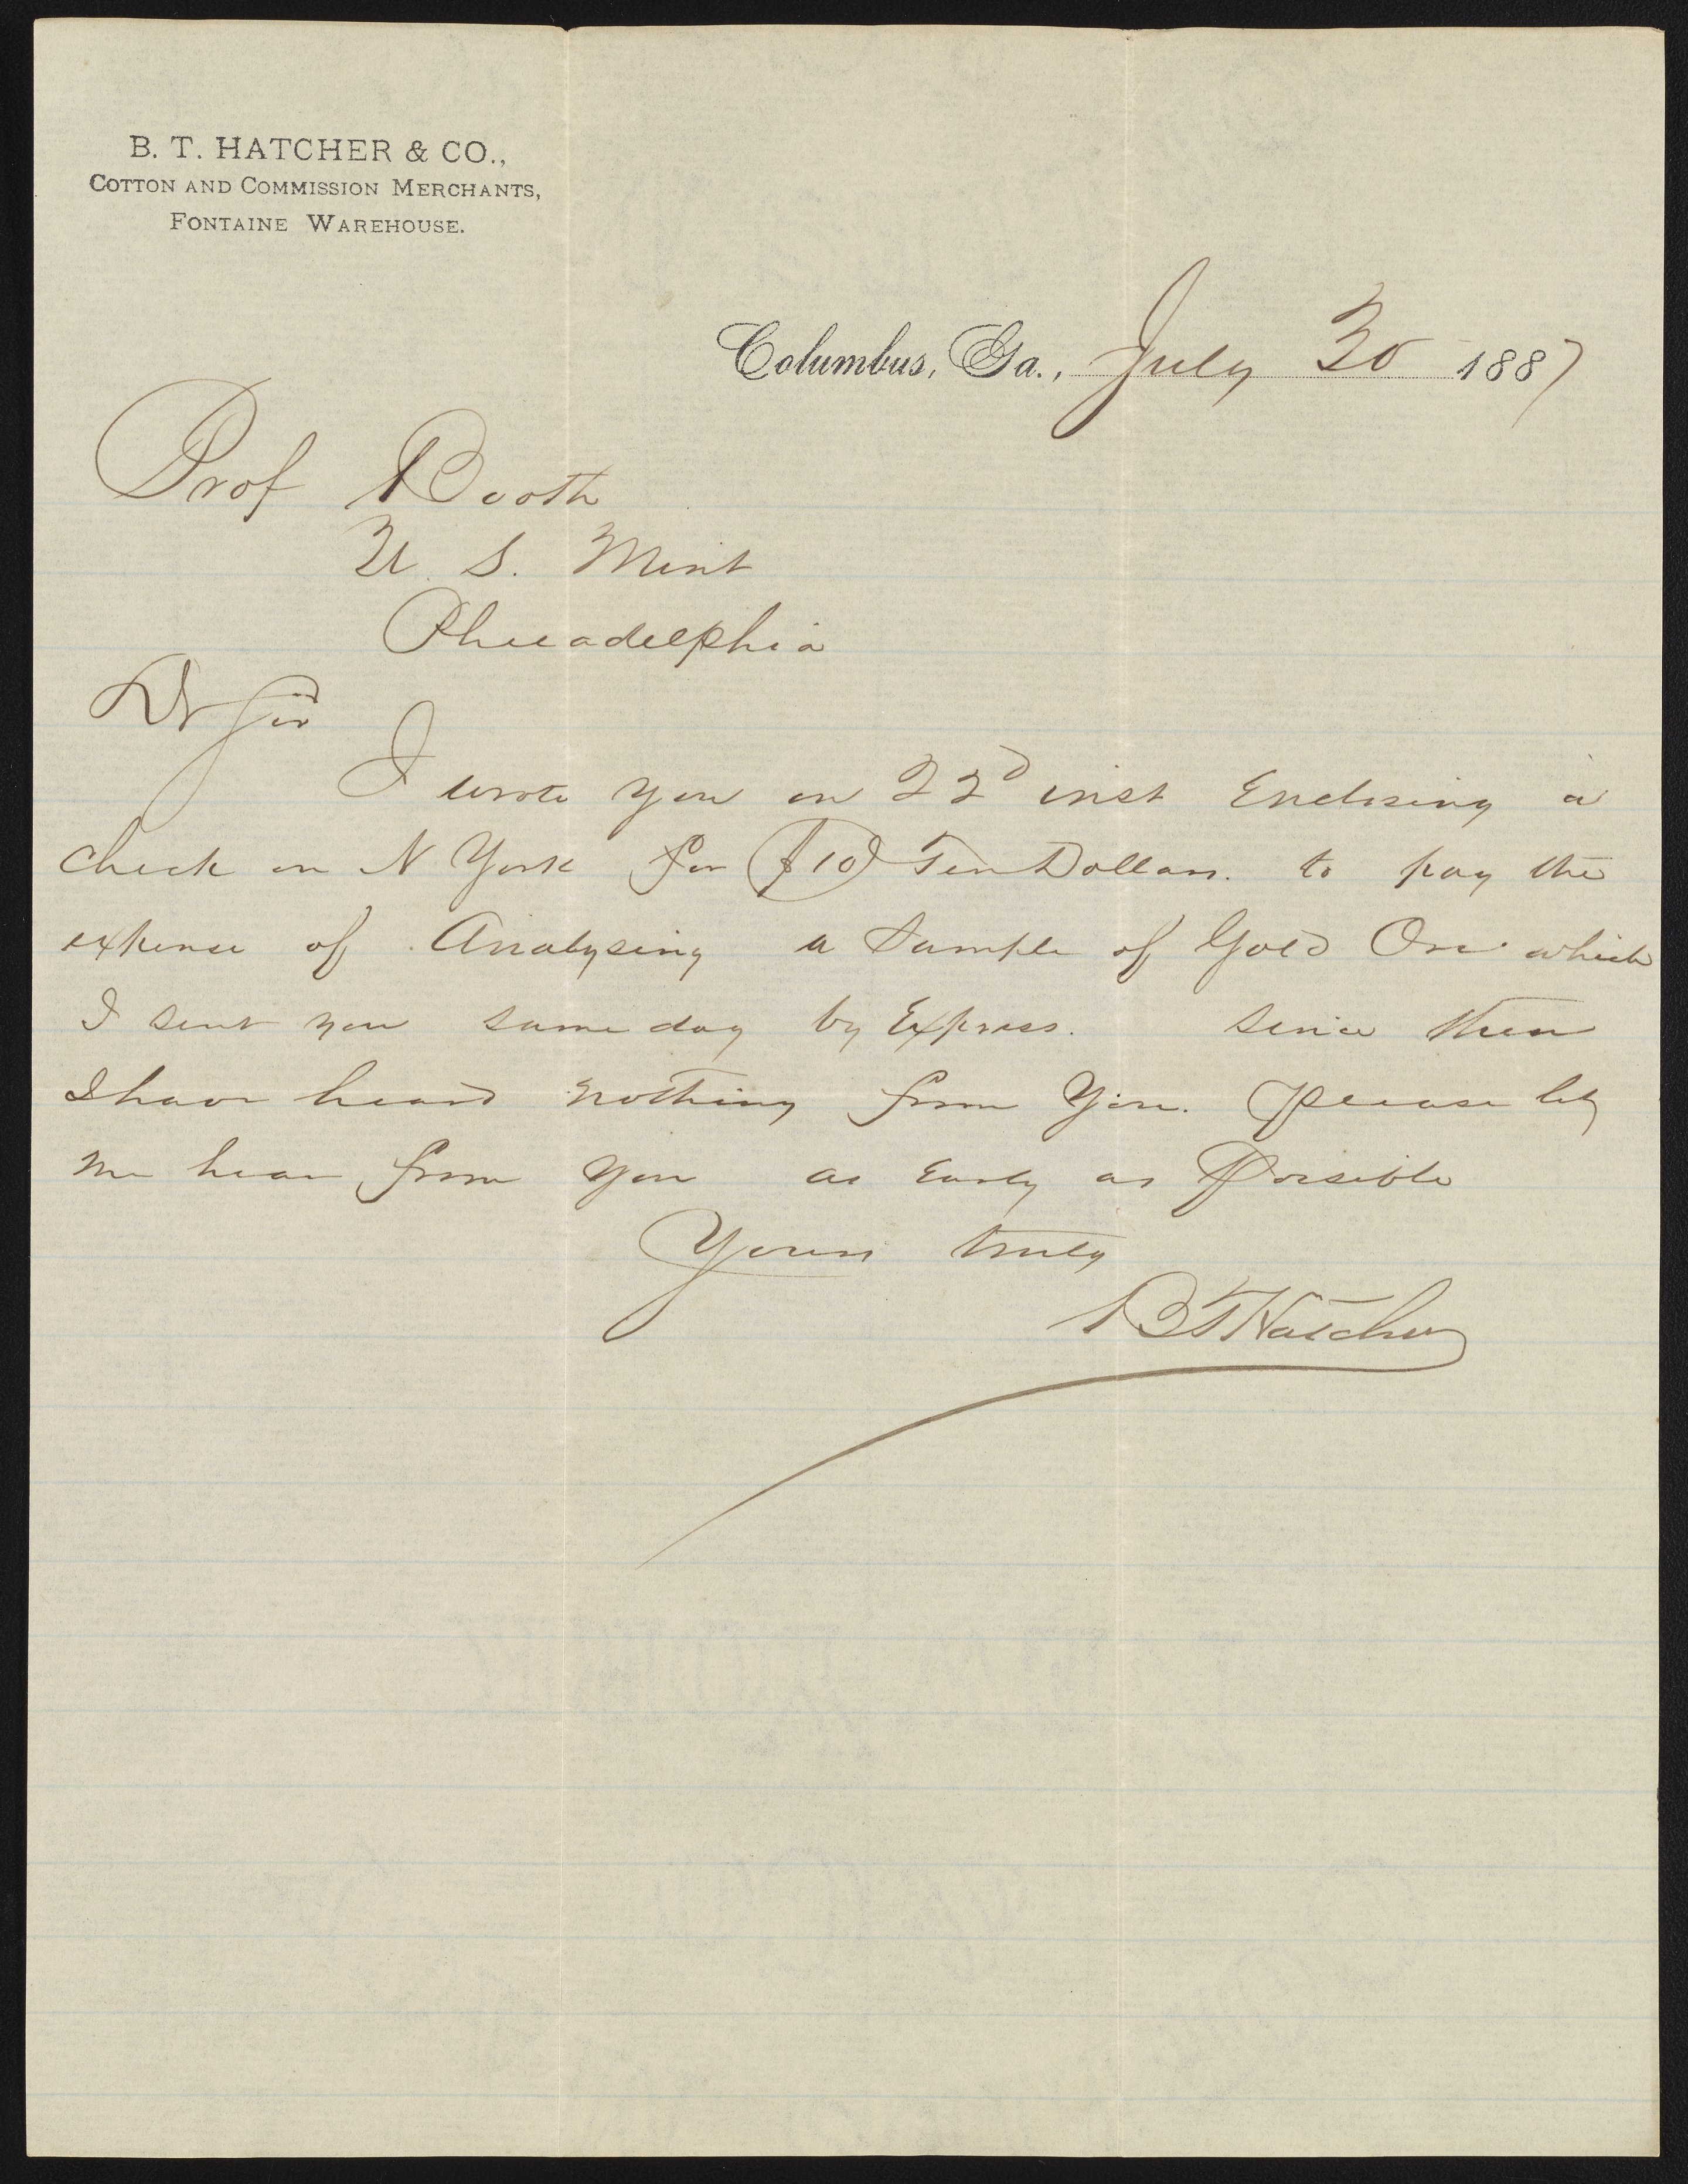 B. T. HATCHER & CO.,
COTTON AND COMMISSION MERCHANTS,
FONTAINE WAREHOUSE.
Columbus, Ga., July 30 1887
Prof Booth
U. S. Mint
Philadelphia
Dr Sir
I wrote you on 22d inst Enclosing a
check on N York for ($10) Ten Dollars. to pay the
expense of Analysing a Sample of Gold Ore which
I sent you same day by Express. since then
I have heard nothing from You. Please let
me hear from you as Early as Possible
Yours truly
B T Hatcher